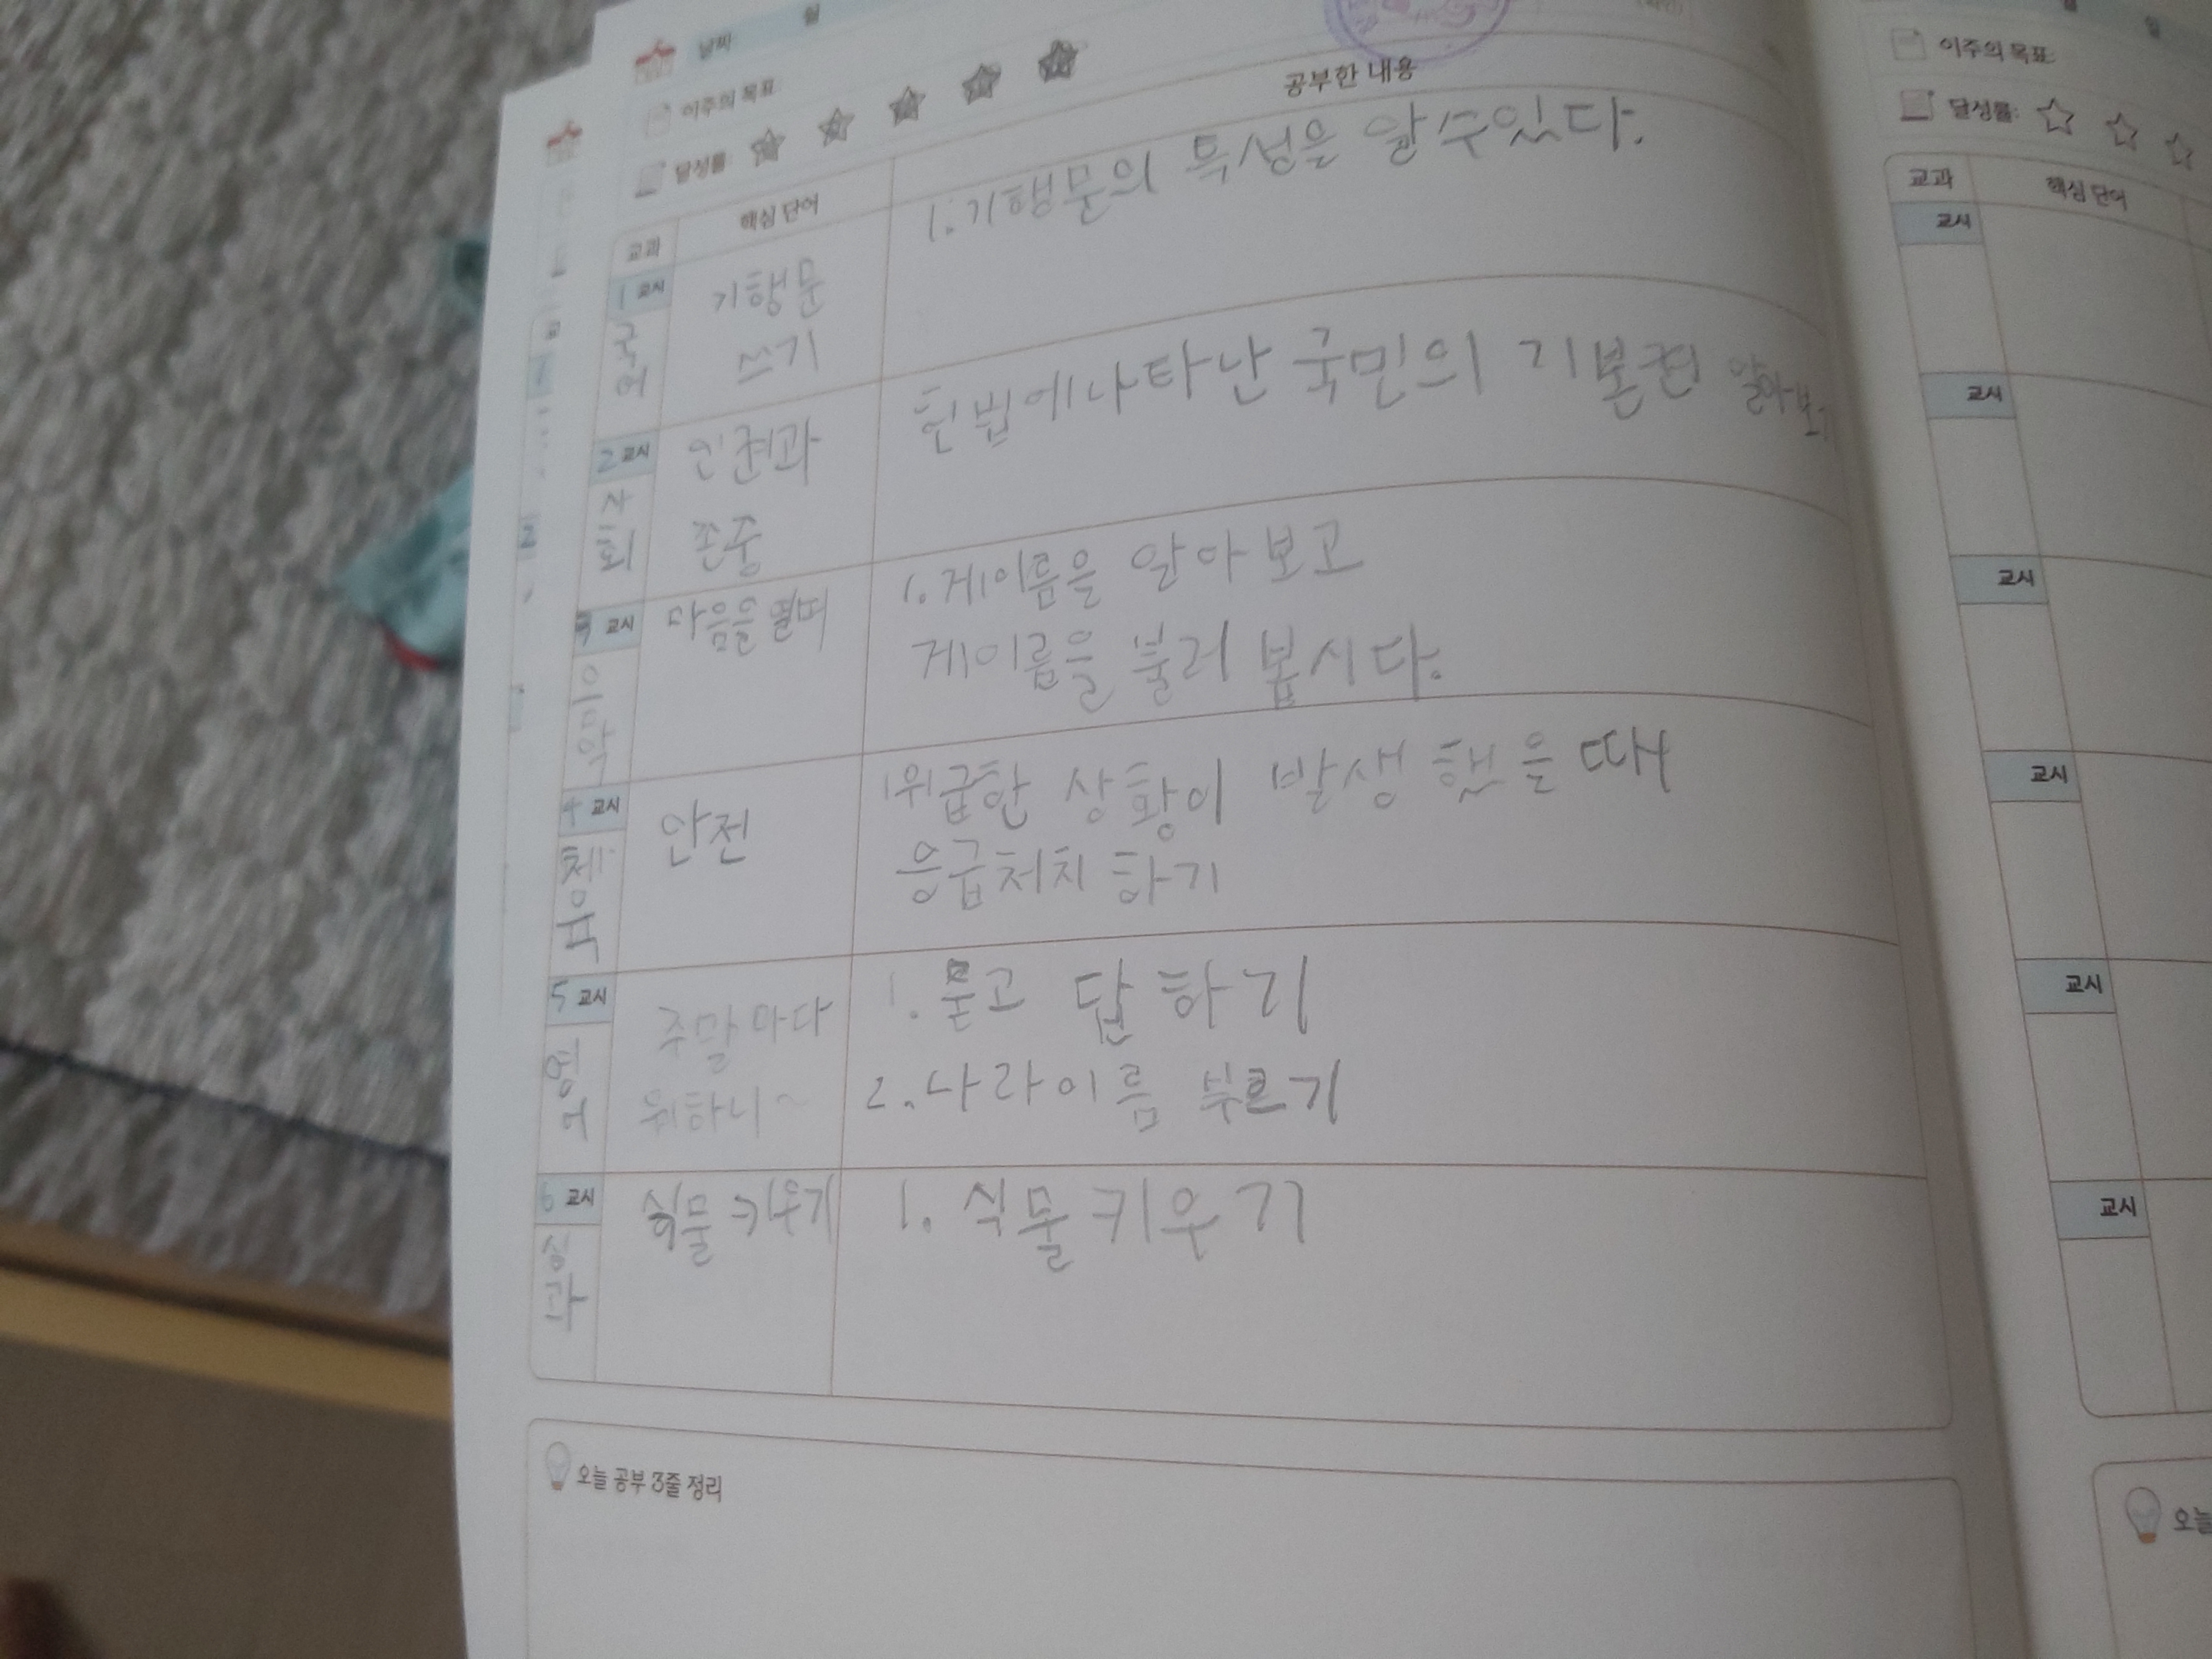 날짜 월
이주의 목표
달성률
교과 핵심 단어 공부한 내용
1 교시
국어
기행문
쓰기
1. 기행문의 특성을 알 수 있다.
2 교시
사회
인권과
존중
헌법에 나타난 국민의 기본권 알아보
교시
음악
마음을 열며
1. 계이름을 알아보고
계이름을 불러 봅시다.
4 교시
체육
안전
1 위급한 상황이 발생했을 때
응급처치 하기
5 교시
영어
주말마다
뭐하니~
1. 묻고 답하기
2. 나라이름 부르기
6 교시
실과
식물 키우기
1. 식물 키우기
오늘 공부 3줄 정리
이주의 목표
달성률:
교과 핵심 단어
교시
교시
교시
교시
교시
교시
오늘